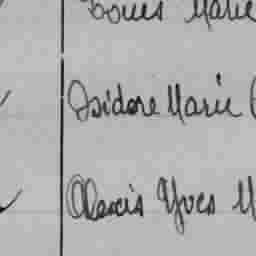 Louis Marie
Isidore Marie
Alexis Yves M